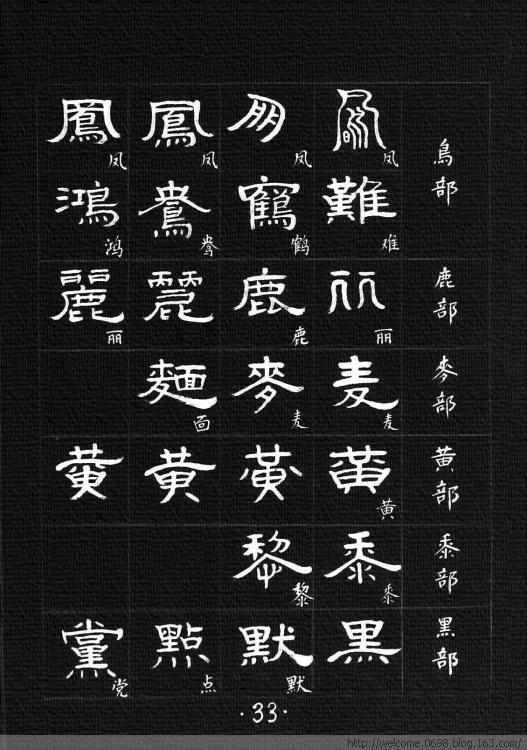 鳥部
鳳 朋 鳳 鳳
凤 凤 凤 凤
難 鶴 鴦 鴻
难 鹤 鸯 鸿
鹿部
丽 鹿 麗 麗
丽 鹿 丽
麥部
麦 麥 麵
麦 麦 面
黄部
黄 黄 黄 黄
黄
黍部
黍 黎
黍 黎
黑部
黑 默 點 黨
默 点 党
·33·
http://welcome.0698.blog.163.com/